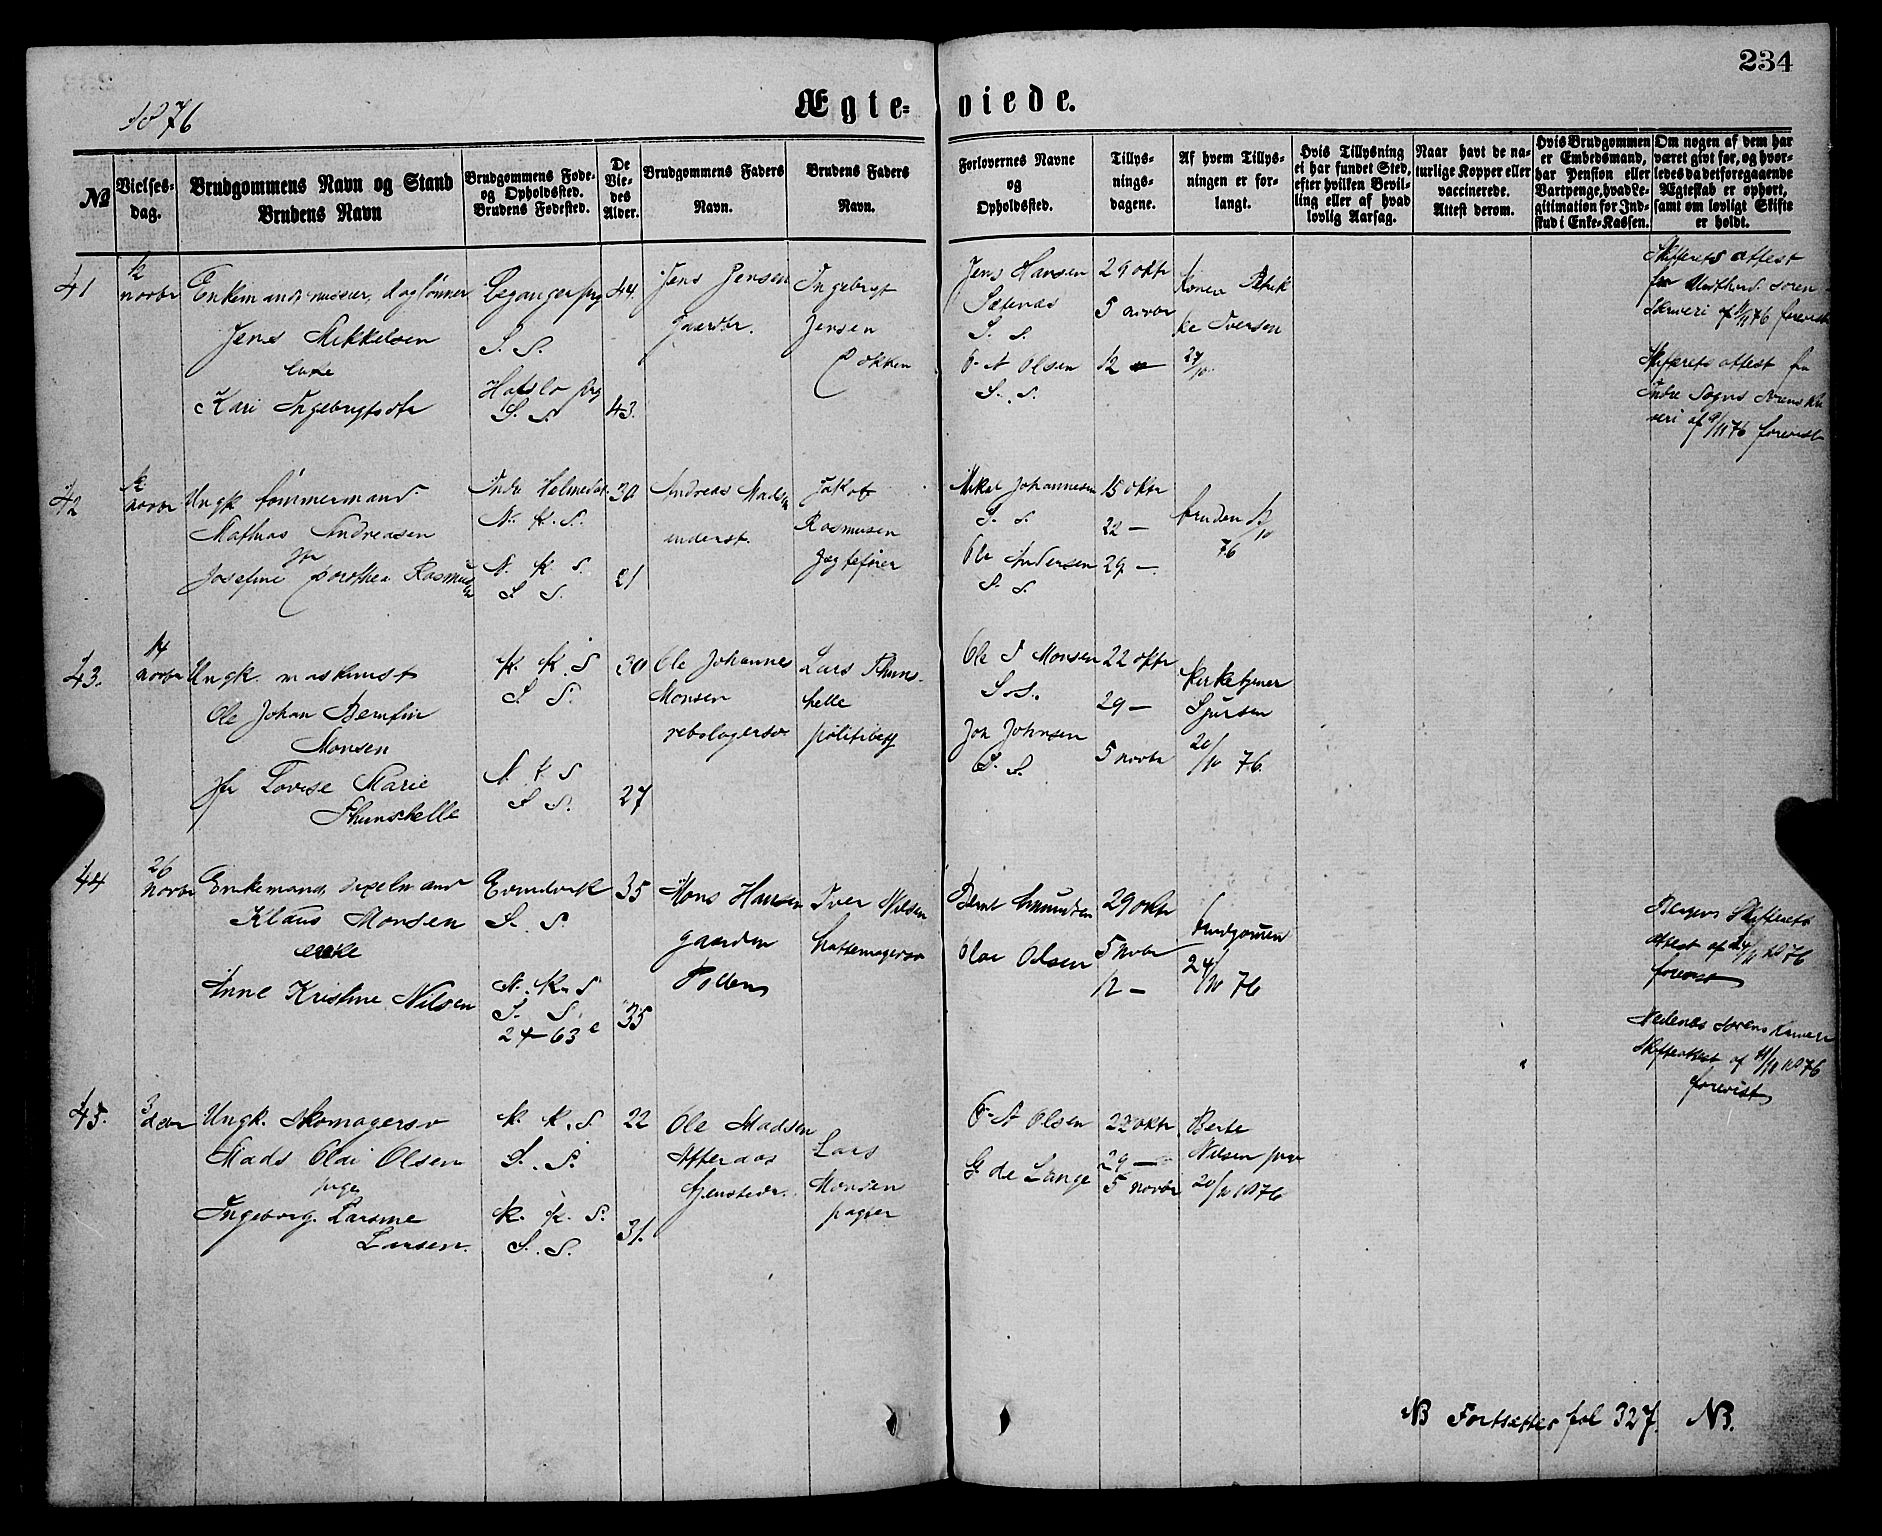 234
1876
Ægte- viede.
№
Vielses-
dag.
Brudgommens Navn og Stand
Brudens Navn
Brudgommens Føde-
og Opholdssted.
Brudens Fødested.
De
Vie-
des
Alder.
Brudgommens Faders
Navn.
Brudens Faders
Navn.
Forlovernes Navne
og
Opholdssted.
Tillys-
nings-
dagene.
Af hvem Tillys-
ningen er for-
langt.
Hvis Tillysning
ei har fundet Sted,
efter hvilken Bevil-
ling eller af hvad
lovlig Aarsag.
Naar havt de na-
turlige Kopper eller
vaccinerede.
Attest derom.
Hvis Brudgommen
er Embedsmand,
har Pension eller
Vartpenge, hvad Le-
gitimation for Ind-
skud i Enke-Kassen.
Om nogen af dem har
været givt før, og hvor-
ledes da det foregaaende
Ægteskab er ophørt,
samt om lovligt Skifte
er holdt.
41
novbr
Enkemand daglønner
Jens Mikkelsen
enke
Kari Ingebrigtsdtr
S. S.
Hafslo prg
S. S.
44.
43.
Jens Jensen
gaardbr.
Ingebrgt
Jensen
Jens Hansen
S. S.
O A Olsen
S. S.
29 oktr
5 novbr
12 —
Konen
Iversen
24/10
Skifterets attest
forevist
Skifterets attest fra
Indre Sogns Sorenskri
veri af 9/11 76 forevist
42
novbr
Ungk tømmermand
Mathias Andreasen
pge
Josefine Dorothea Rasmus
N. K. S.
N. K. S.
S. S.
30
21
Andreas Mads
inderst.
Jakob
Rasmusen
Jægtefører
Mikal Johannesen
S. S.
Ole Andersen
S. S.
15 oktr
22 —
29 —
bruden
76
43.
14
novbr
Ungk. maskinist
Ole Johan Bernfin
Monsen
pge Lovise Marie
Thunshelle
K. K. S
S S.
N. K S
S S.
30
27
Ole Johannes
Monsen
rebslagersv
Lars Thuns-
helle
politibetj
Ole J Monsen
S. S.
Joh Johnsen
S. S.
22 oktr
29 —
5 novbr
Kirketjener
Sjursen
20/10 76
44
26
novbr
Enkemand
Klaus Monsen
enke
Anne Kristine Nilsen
Evindvik
S. S.
N. K. S
S. S.
24-63
35
35
Mons Hansen
gaarden
Iver Nilsen
hattemagersv
Bernt Amundsen
Olai Olsen
29 oktr
5 novbr
12 —
brudgomen
24/10 76
Bergens Skifterets
attest af 24/11 1876
forevist
Nedenes Sorenskriveri
Skifteattest af 11/11 1876
forevist
45.
3
decbr
Ungk. Skomagersv
Mads Olai Olsen
pige
Ingeborg Larsine
Larsen.
K. K. S
S. S.
K. K. S.
S. S.
22
31.
Ole Madsen
Lars
Monsen
O A Olsen
G de Lange
22 oktr
29 —
5 novbr
Berte
Nilsen pige
20/10 1876
NB Fortsættes fol 327. NB.